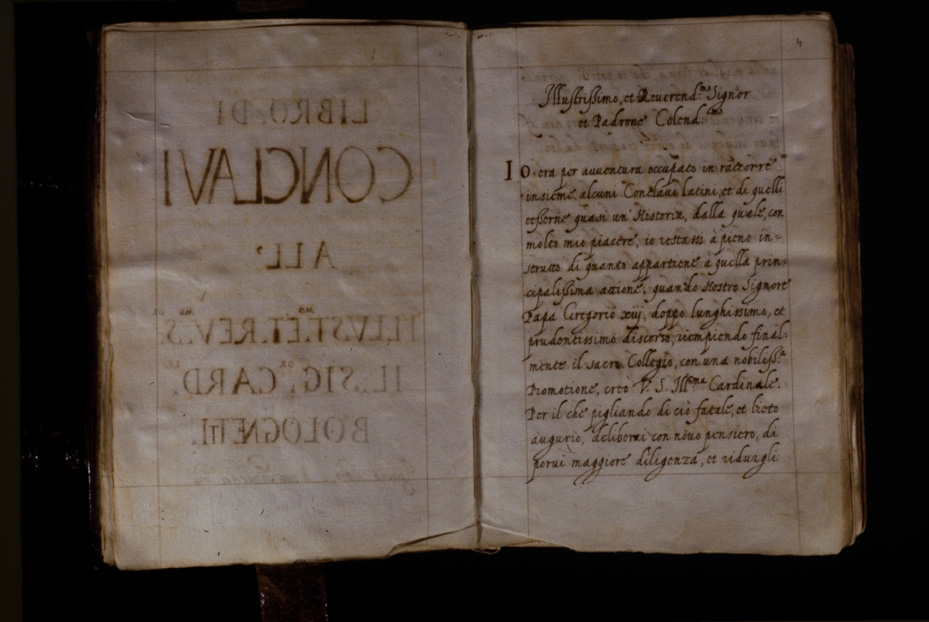 LIBRO. DI
CONCLAVI
ALL'
ILLUST.MO ET. REV.MO S.OR
IL. SIG.OR CARD.LE
BOLOGNETTI.
4
Illustrissimo, et Reuerend.mo Signor
et Padrone Colend.mo
Io era per auuentura occupato in raccorre
insieme alcuni Conclaui latini, et di quelli
tesserne quasi un' Historia, dalla quale, con
molto mio piacere, io restassi à pieno in-
strutto di quanto appartiene à quella prin-
cipalissima attione, quando Nostro Signore
Papa Gregorio xiij, doppo lunghissimo, et
prudentissimo discorso, riempiendo final-
mente il sacro Collegio, con una nobiliss.a
Promotione, creò V. S. Ill.ma Cardinale.
Per il che pigliando di ciò fatale, et lieto
augurio, deliberai con nouo pensiero, di
porui maggiore diligenza, et ridurgli